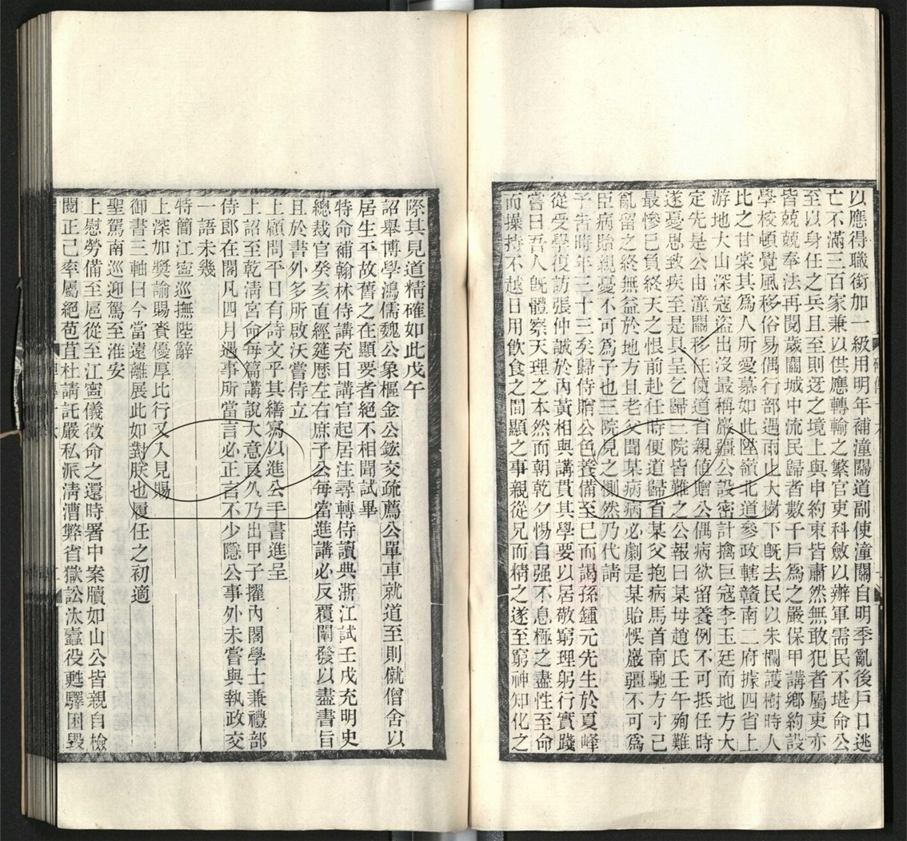 以應得職銜加一級用明年補潼關道副使潼關自明季亂後戶口逃
亡不滿三百家兼以供應轉輸之繁官吏科斂以辦軍需民不堪命公
至以身任之兵且至則迓之境上與申約束皆肅然無敢犯者屬吏亦
皆兢兢奉法再閱歲關城中流民歸者數千戶為之嚴保甲講鄉約設
學校頓覺風移俗易偶行部遇雨止大樹下旣去民以朱欄護樹時人
比之甘棠其為人所愛慕如此陞嶺北道參政轄贛南二府據四省上
游地大山深寇盜出沒最稱嚴疆公設密計擒巨寇李玉廷而地方大
定先是公由潼關移任便道首親値贈公偶病欲留養例不可抵任時
遂憂思致疾至是具呈乞歸三院皆難之公報曰某母趙氏壬午殉難
最慘已負終天之恨前赴任時便道歸省某父抱病馬首南馳方寸已
亂留之終無益於地方且老父聞某病病必劇是某貽悞嚴疆不可為
臣病貽親憂不可為子也三院見之惻然乃代請
予告時年三十三矣歸侍贈公色養備至已而謁孫鍾元先生於夏峰
從受學復訪張仲誠於內黃相與講貫其學要以居敬窮理躬行實踐
嘗曰吾人旣體察天理之本然而朝乾夕惕自强不息極之盡性至命
而操持不越日用飲食之間顯之事親從兄而精之遂至窮神知化之
際其見道精確如此戊午
詔舉博學鴻儒魏公象樞金公鋐交疏薦公單車就道至則僦僧舍以
居生平故舊之在顯要者絕不相聞試畢
特命補翰林侍講充日講官起居注尋轉侍讀典浙江試壬戌充明史
總裁官癸亥直經筵歷左右庶子公每當進講必反覆闡發以盡書旨
且於書外多所啟沃嘗侍立
上顧問平日有詩文乎其繕寫以進公手書進呈
上詔至乾淸宮命每篇講說大意良久乃出甲子擢內閣學士兼禮部
侍郎在閣凡四月遇事所當言必正言不少隱公事外未嘗與執政交
一語未幾
特簡江寧巡撫陛辭
上深加獎諭賜賚優厚比行又入見賜
御書三軸曰今當遠離展此如對朕也履任之初適
聖駕南巡迎駕至淮安
上慰勞備至扈從至江寧儀徵命之還時署中案牘如山公皆親自檢
閱正己率屬絕苞苴杜請託嚴私派淸漕弊省獄訟汰蠹役甦驛困毁